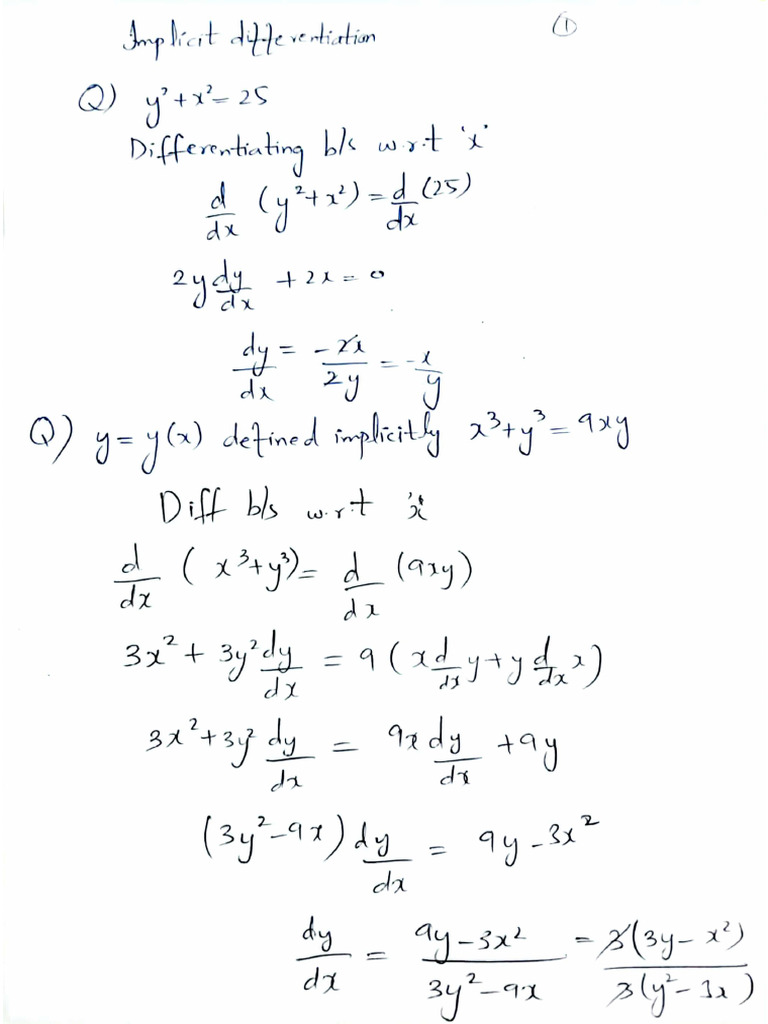 Implicit differentiation ①
Q) y² + x² = 25
Differentiating b/s w.r.t 'x'
d/dx (y² + x²) = d/dx (25)
2y dy/dx + 2x = 0
dy/dx = -2x/2y = -x/y
Q) y = y(x) defined implicitly x³ + y³ = 9xy
Diff b/s w.r.t 'x'
d/dx (x³ + y³) = d/dx (9xy)
3x² + 3y² dy/dx = 9 (x d/dx y + y d/dx x)
3x² + 3y² dy/dx = 9x dy/dx + 9y
(3y² - 9x) dy/dx = 9y - 3x²
dy/dx = (9y - 3x²)/(3y² - 9x) = 3(3y - x²)/3(y² - 3x)